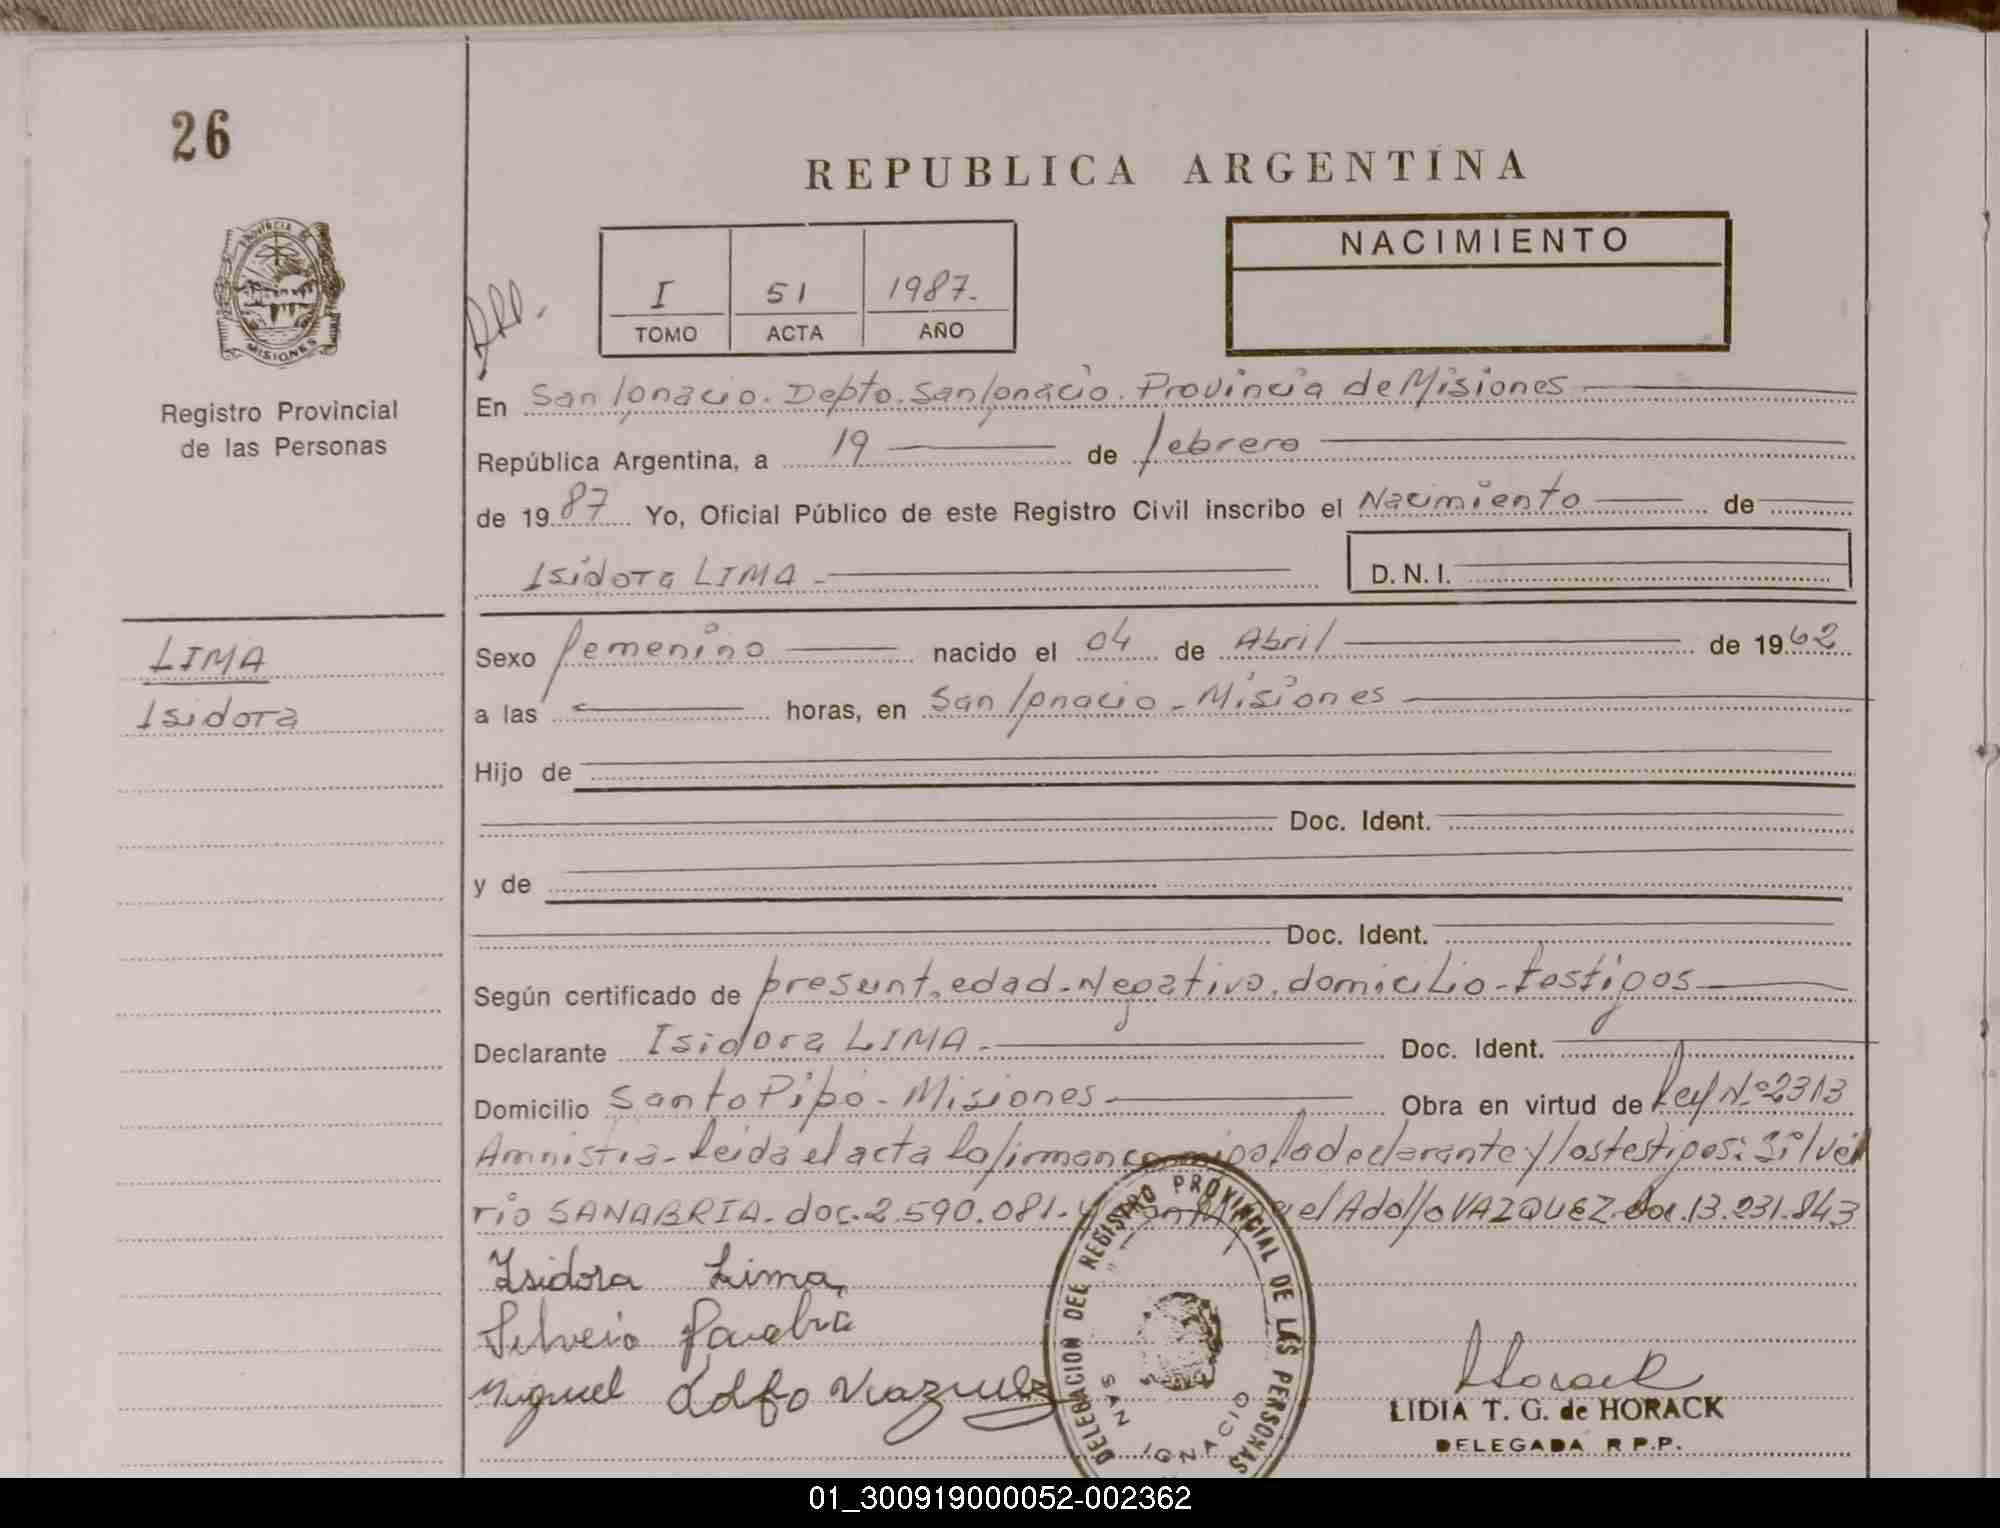 26
REPUBLICA ARGENTINA
PROVINCIA DE
MISIONES
NACIMIENTO
I 51 1987.
TOMO ACTA AÑO
Registro Provincial
de las Personas
En San Ignacio. Depto. San Ignacio. Provincia de Misiones
República Argentina, a 19 de febrero
de 1987 Yo, Oficial Público de este Registro Civil inscribo el Nacimiento de
Isidora LIMA - D. N. I.
LIMA
Isidora
Sexo femenino nacido el 04 de Abril de 1962
a las horas, en San Ignacio - Misiones
Hijo de
Doc. Ident.
y de
Doc. Ident.
Según certificado de presunt. edad - Negativo. domicilio - testigos
Declarante Isidora LIMA - Doc. Ident.
Domicilio Santo Pipó - Misiones - Obra en virtud de Ley Nº 2313
Amnistia - leida el acta la firman conmigo la declarante y los testigos: Silvei
rio SANABRIA. doc. 2.590.081. y el Adolfo VAZQUEZ. doc. 13.231.843
Isidora Lima
Silveio
Miguel Adolfo Vazquez
DELEGACION DEL REGISTRO PROVINCIAL DE LAS PERSONAS
SAN IGNACIO
Horack
LIDIA T. G. de HORACK
DELEGADA R.P.P.
01_300919000052-002362